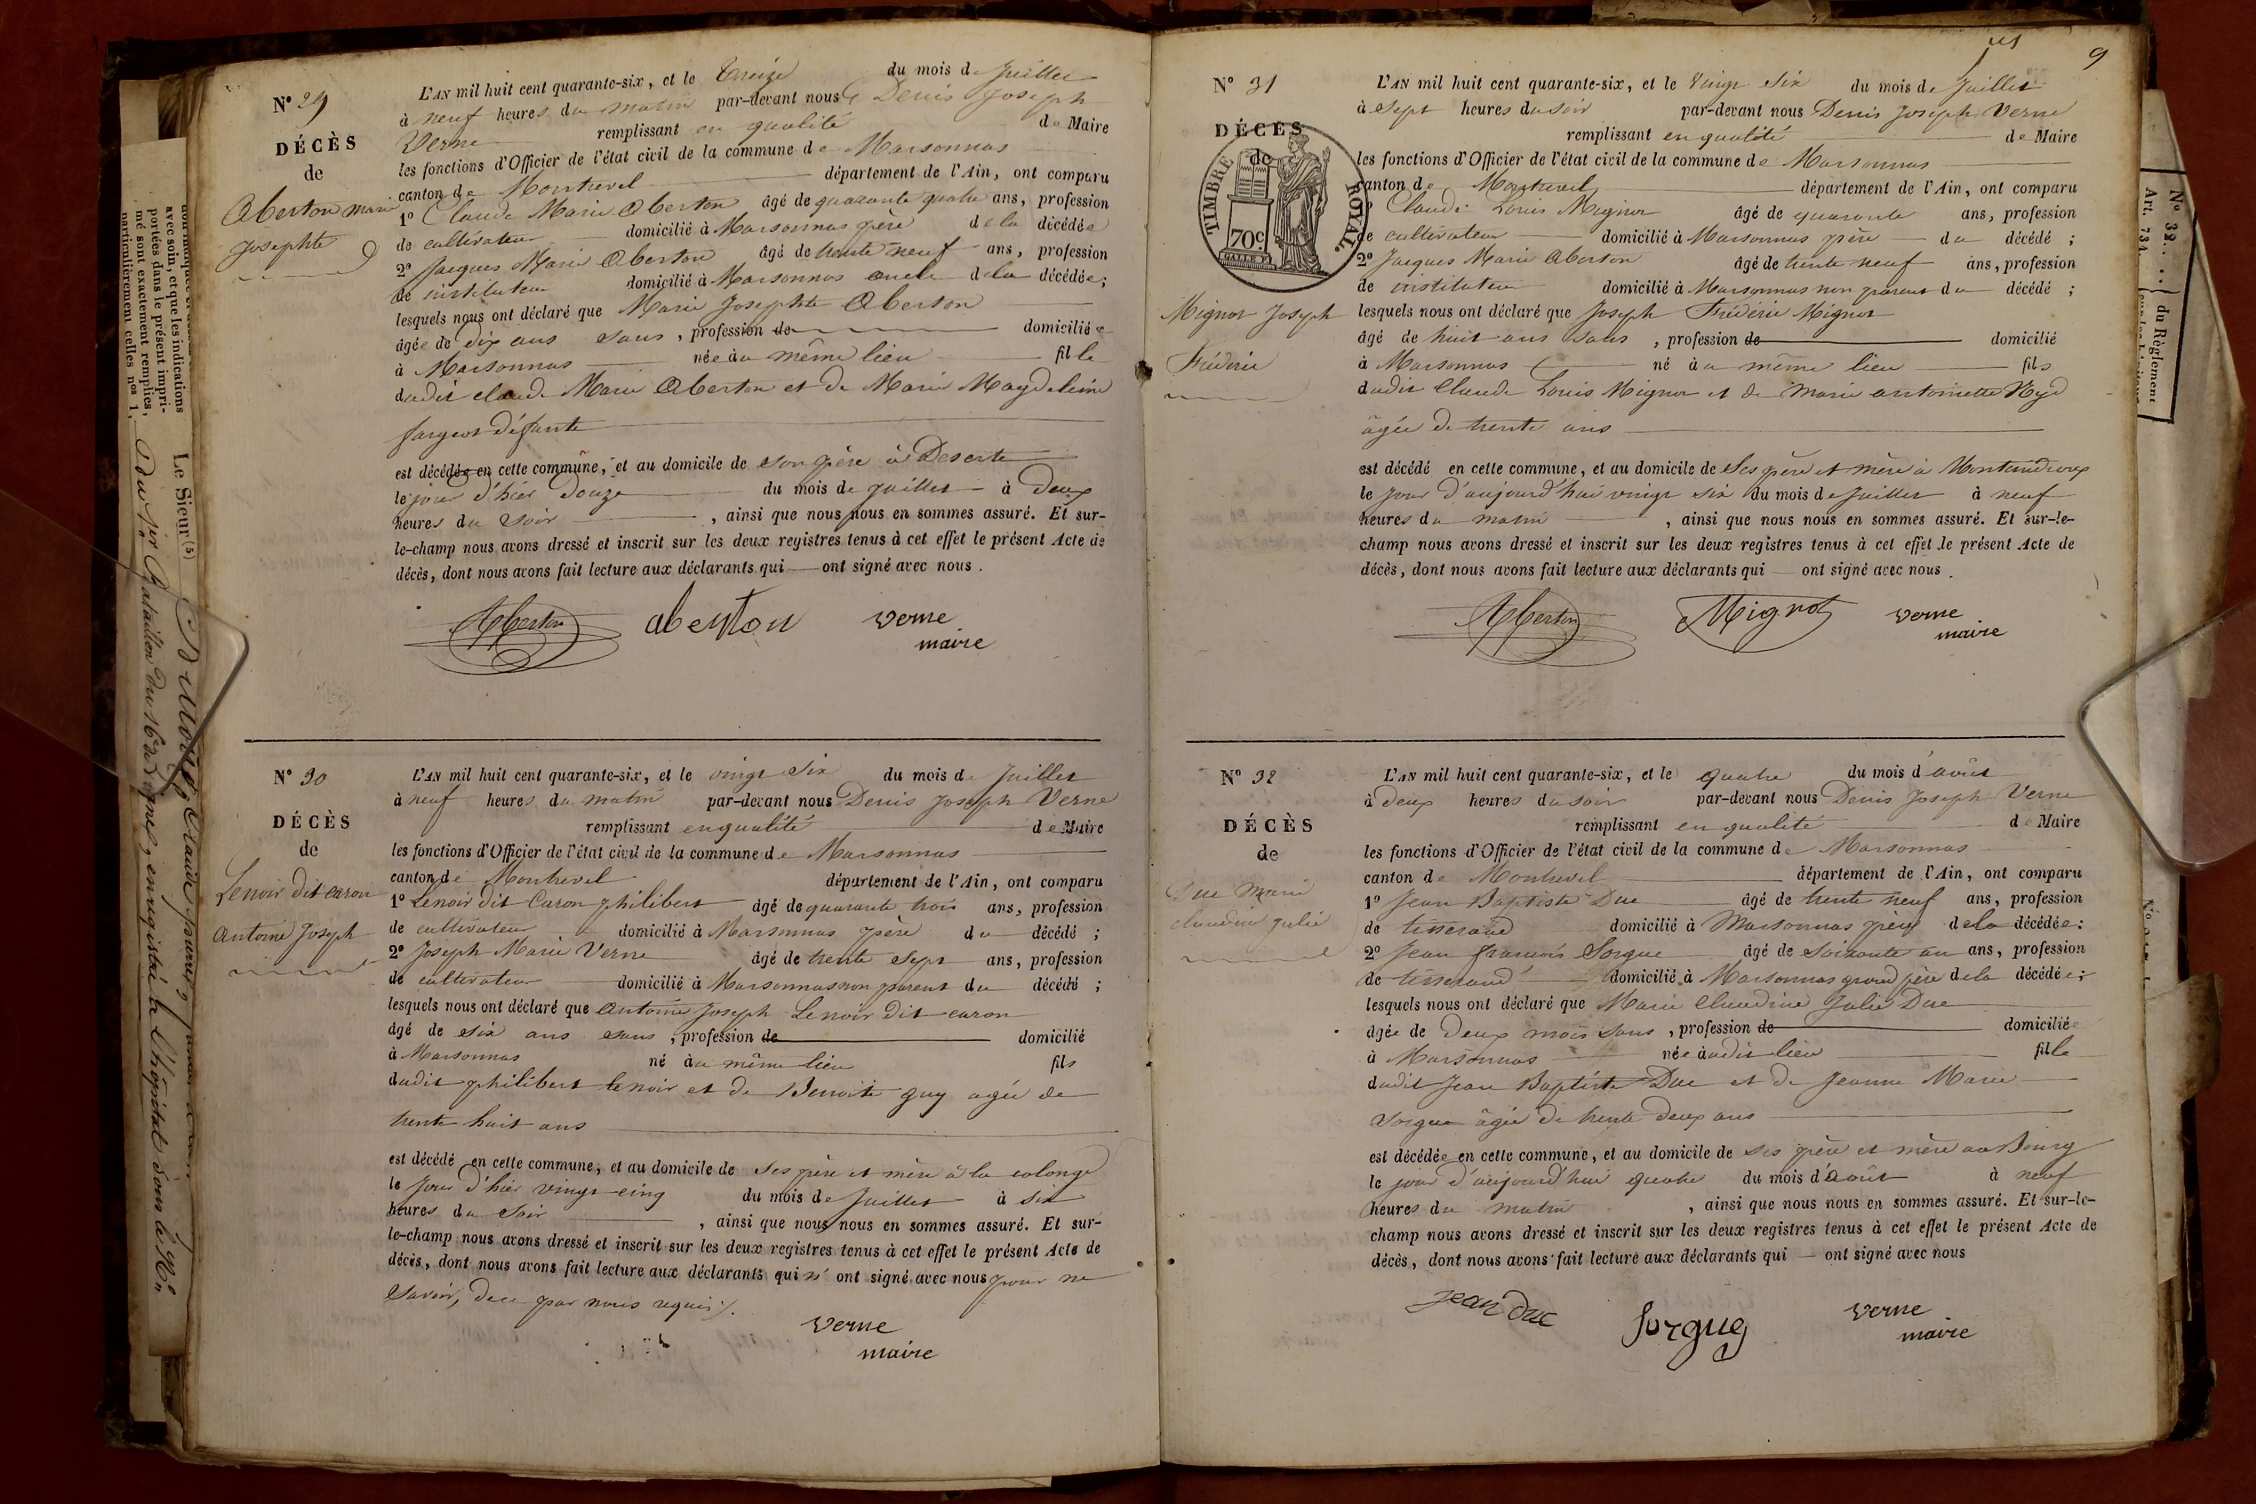 N° 29
DÉCÈS
de
Aberton Marie
Josephte
L'AN mil huit cent quarante-six, et le treize du mois de Juillet
à neuf heures du matin par-devant nous Denis Joseph
Verne remplissant en qualité de Maire
les fonctions d'Officier de l'état civil de la commune de Marsonnas
canton de Montrevel département de l'Ain, ont comparu
1° Claude Marie Aberton âgé de quarante quatre ans, profession
de cultivateur domicilié à Marsonnas père de la décédée
2° Jacques Marie Aberton âgé de trente neuf ans, profession
de instituteur domicilié à Marsonnas oncle de la décédée;
lesquels nous ont déclaré que Marie Josephte Aberton
âgée de dix ans sans, profession de domiciliée
à Marsonnas née au même lieu fille
dudit claude Marie Aberton et de Marie Magdeleine
fargeot défunte
est décédée en cette commune, et au domicile de son père à Deserte
le jour d'hier douze du mois de juillet à deux
heures du soir, ainsi que nous nous en sommes assuré. Et sur-
le-champ nous avons dressé et inscrit sur les deux registres tenus à cet effet le présent Acte de
décès, dont nous avons fait lecture aux déclarants qui ont signé avec nous.
Aberton aberton verne
maire
N° 30
DÉCÈS
de
Lenoir dit caron
antoine Joseph
L'AN mil huit cent quarante-six, et le vingt six du mois de Juillet
à neuf heures du matin par-devant nous Denis Joseph Verne
remplissant en qualité de Maire
les fonctions d'Officier de l'état civil de la commune de Marsonnas
canton de Montrevel département de l'Ain, ont comparu
1° Lenoir dit Caron philibert âgé de quarante trois ans, profession
de cultivateur domicilié à Marsonnas père du décédé;
2° Joseph Marie Verne âgé de trente sept ans, profession
de cultivateur domicilié à Marsonnas non parent du décédé;
lesquels nous ont déclaré que antoine Joseph Lenoir dit caron
âgé de six ans sans, profession de domicilié
à Marsonnas né au même lieu fils
dudit philibert lenoir et de Benoite guy agée de
trente huit ans
est décédé en cette commune, et au domicile de ses père et mère à la colonge
le jour d'hier vingt cinq du mois de Juillet à six
heures du soir, ainsi que nous nous en sommes assuré. Et sur-
le-champ nous avons dressé et inscrit sur les deux registres tenus à cet effet le présent Acte de
décès, dont nous avons fait lecture aux déclarants qui n' ont signé avec nous pour ne
savoir, de ce par nous requis
verne
maire
9
N° 31
DÉCÈS
de
TIMBRE ROYAL
70c
Mignot Joseph
Fréderic
L'AN mil huit cent quarante-six, et le vingt six du mois de Juillet
à sept heures du soir par-devant nous Denis Joseph Verne
remplissant en qualité de Maire
les fonctions d'Officier de l'état civil de la commune de Marsonnas
canton de Montrevel département de l'Ain, ont comparu
Claude Louis Mignot âgé de quarante ans, profession
de cultivateur domicilié à Marsonnas père du décédé;
2° Jacques Marie Aberton âgé de trente neuf ans, profession
de instituteur domicilié à Marsonnas non parent du décédé;
lesquels nous ont déclaré que Joseph Fréderic Mignot
âgé de huit ans sans, profession de domicilié
à Marsonnas né au même lieu fils
dudit Claude Louis Mignot et de Marie antoinette
âgée de trente ans
est décédé en cette commune, et au domicile de ses père et mère à
le jour d'aujourd'hui vingt six du mois de Juillet à neuf
heures du matin, ainsi que nous nous en sommes assuré. Et sur-le-
champ nous avons dressé et inscrit sur les deux registres tenus à cet effet le présent Acte de
décès, dont nous avons fait lecture aux déclarants qui ont signé avec nous.
Aberton Mignot verne
maire
N° 32
DÉCÈS
de
Duc Marie
claudine julie
L'AN mil huit cent quarante-six, et le quatre du mois d'août
à deux heures du soir par-devant nous Denis Joseph Verne
remplissant en qualité de Maire
les fonctions d'Officier de l'état civil de la commune de Marsonnas
canton de Montrevel département de l'Ain, ont comparu
1° Jean Baptiste Duc âgé de trente neuf ans, profession
de tisserand domicilié à Marsonnas père de la décédée;
2° Jean françois Sorgue âgé de soixante un ans, profession
de tisserand domicilié à Marsonnas grand père de la décédée;
lesquels nous ont déclaré que Marie Claudine Julie Duc
âgée de deux mois sans, profession de domiciliée
à Marsonnas née audit lieu fille
dudit Jean Baptiste Duc et de Jeanne Marie
Sorgue âgée de trente deux ans
est décédée en cette commune, et au domicile de ses père et mère au Bourg
le jour d'aujourd'hui quatre du mois d'août à neuf
heures du matin, ainsi que nous nous en sommes assuré. Et sur-le-
champ nous avons dressé et inscrit sur les deux registres tenus à cet effet le présent Acte de
décès, dont nous avons fait lecture aux déclarants qui ont signé avec nous
jean duc Sorgue verne
maire
N° 32.
du Règlement
Art. 734.
avec soin, et que les indications
portées dans le présent impri-
mé sont exactement remplies,
particulièrement celles nos 1,
Le Sieur (5)